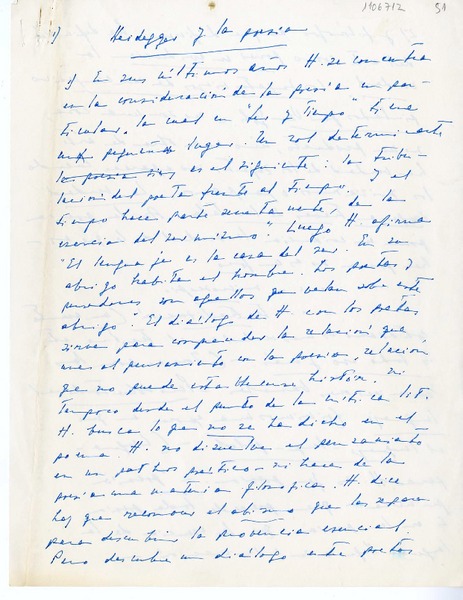 1106712 31
1) Heidegger y la poesía
1) En sus últimos años H. se concentra
en la consideración de la poesía en par-
ticular, la cual en "Ser y Tiempo" tiene
un pequeño lugar. Un rol determinante
la poesía es el siguiente: la
del poeta frente al tiempo. Y el
tiempo hace parte "de la
esencia del ser mismo". Luego H. afirma
"El lenguaje es la casa del ser. En su
abrigo habita el hombre. Los poetas y
pensadores son aquellos que velan sobre este
abrigo". El diálogo de H con los poetas
sirve para comprender la relación que
une al pensamiento con la poesía, relación
que no puede establecerse histór. ni
tampoco desde el punto de la crítica lit.
H. busca lo que no se ha dicho en el
poema. H. no disuelve el pensamiento
en un pathos poético - ni hace de la
poesía una materia filosófica. H. dice
hay que reconocer el abismo que los separa
para descubrir la provincia esencial.
Pero descubre un diálogo entre poetas